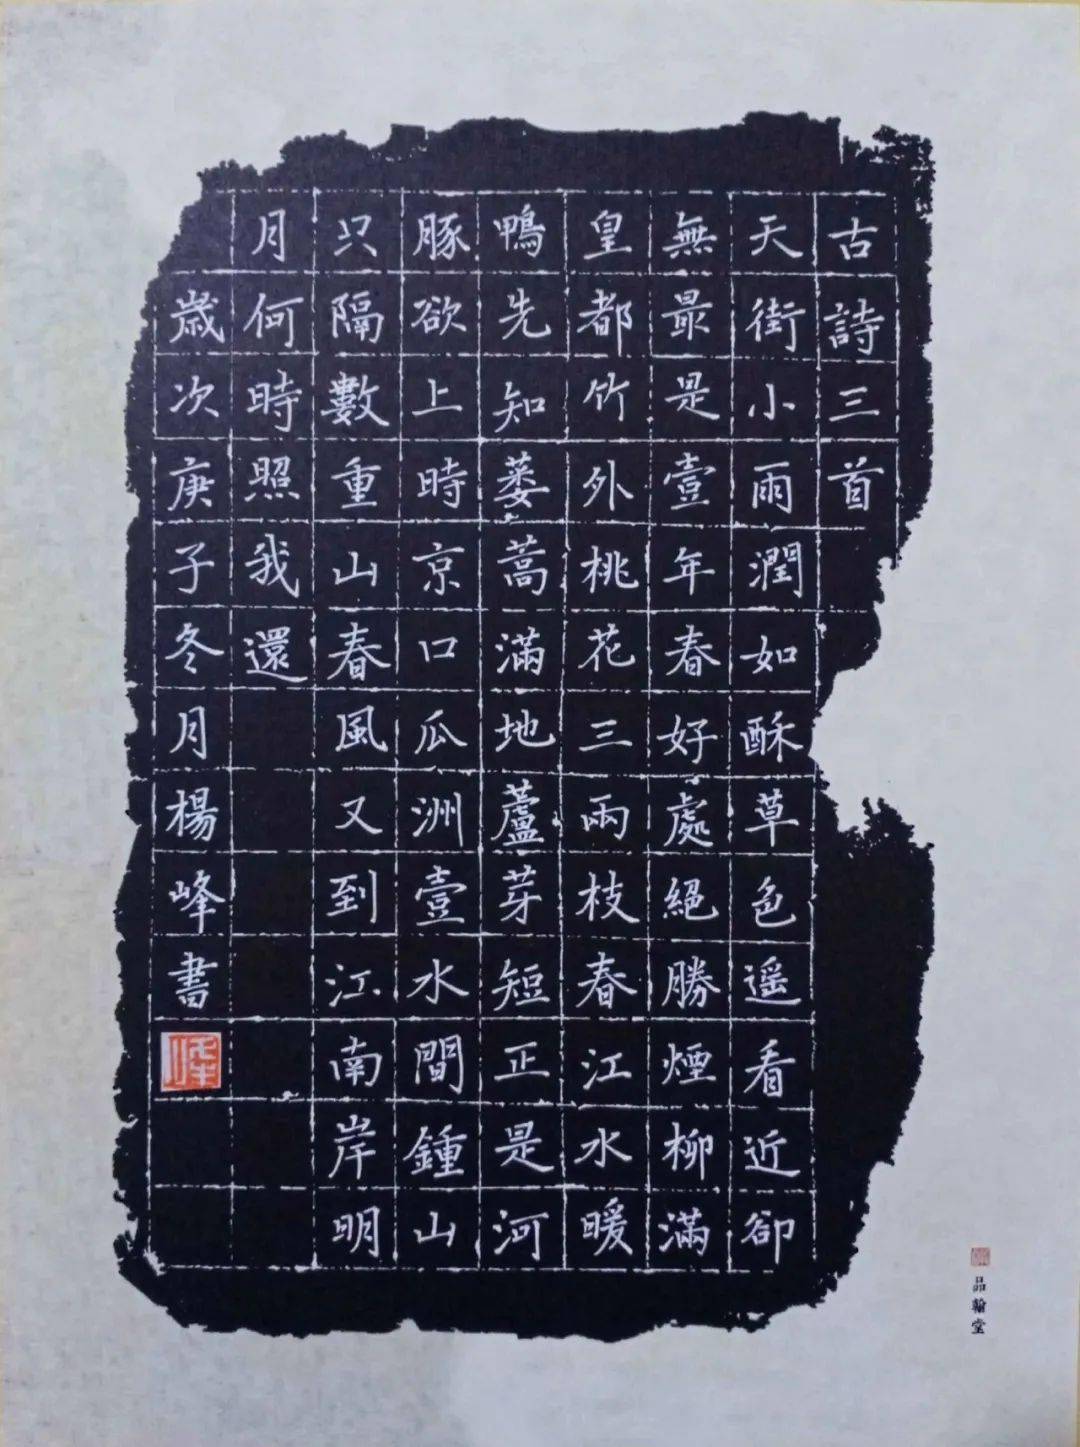 古詩三首
天街小雨潤如酥草色遥看近卻
無最是壹年春好處絕勝煙柳滿
皇都竹外桃花三兩枝春江水暖
鴨先知蔞蒿滿地蘆芽短正是河
豚欲上時京口瓜洲壹水間鍾山
只隔數重山春風又到江南岸明
月何時照我還
歲次庚子冬月楊峰書
品翰堂